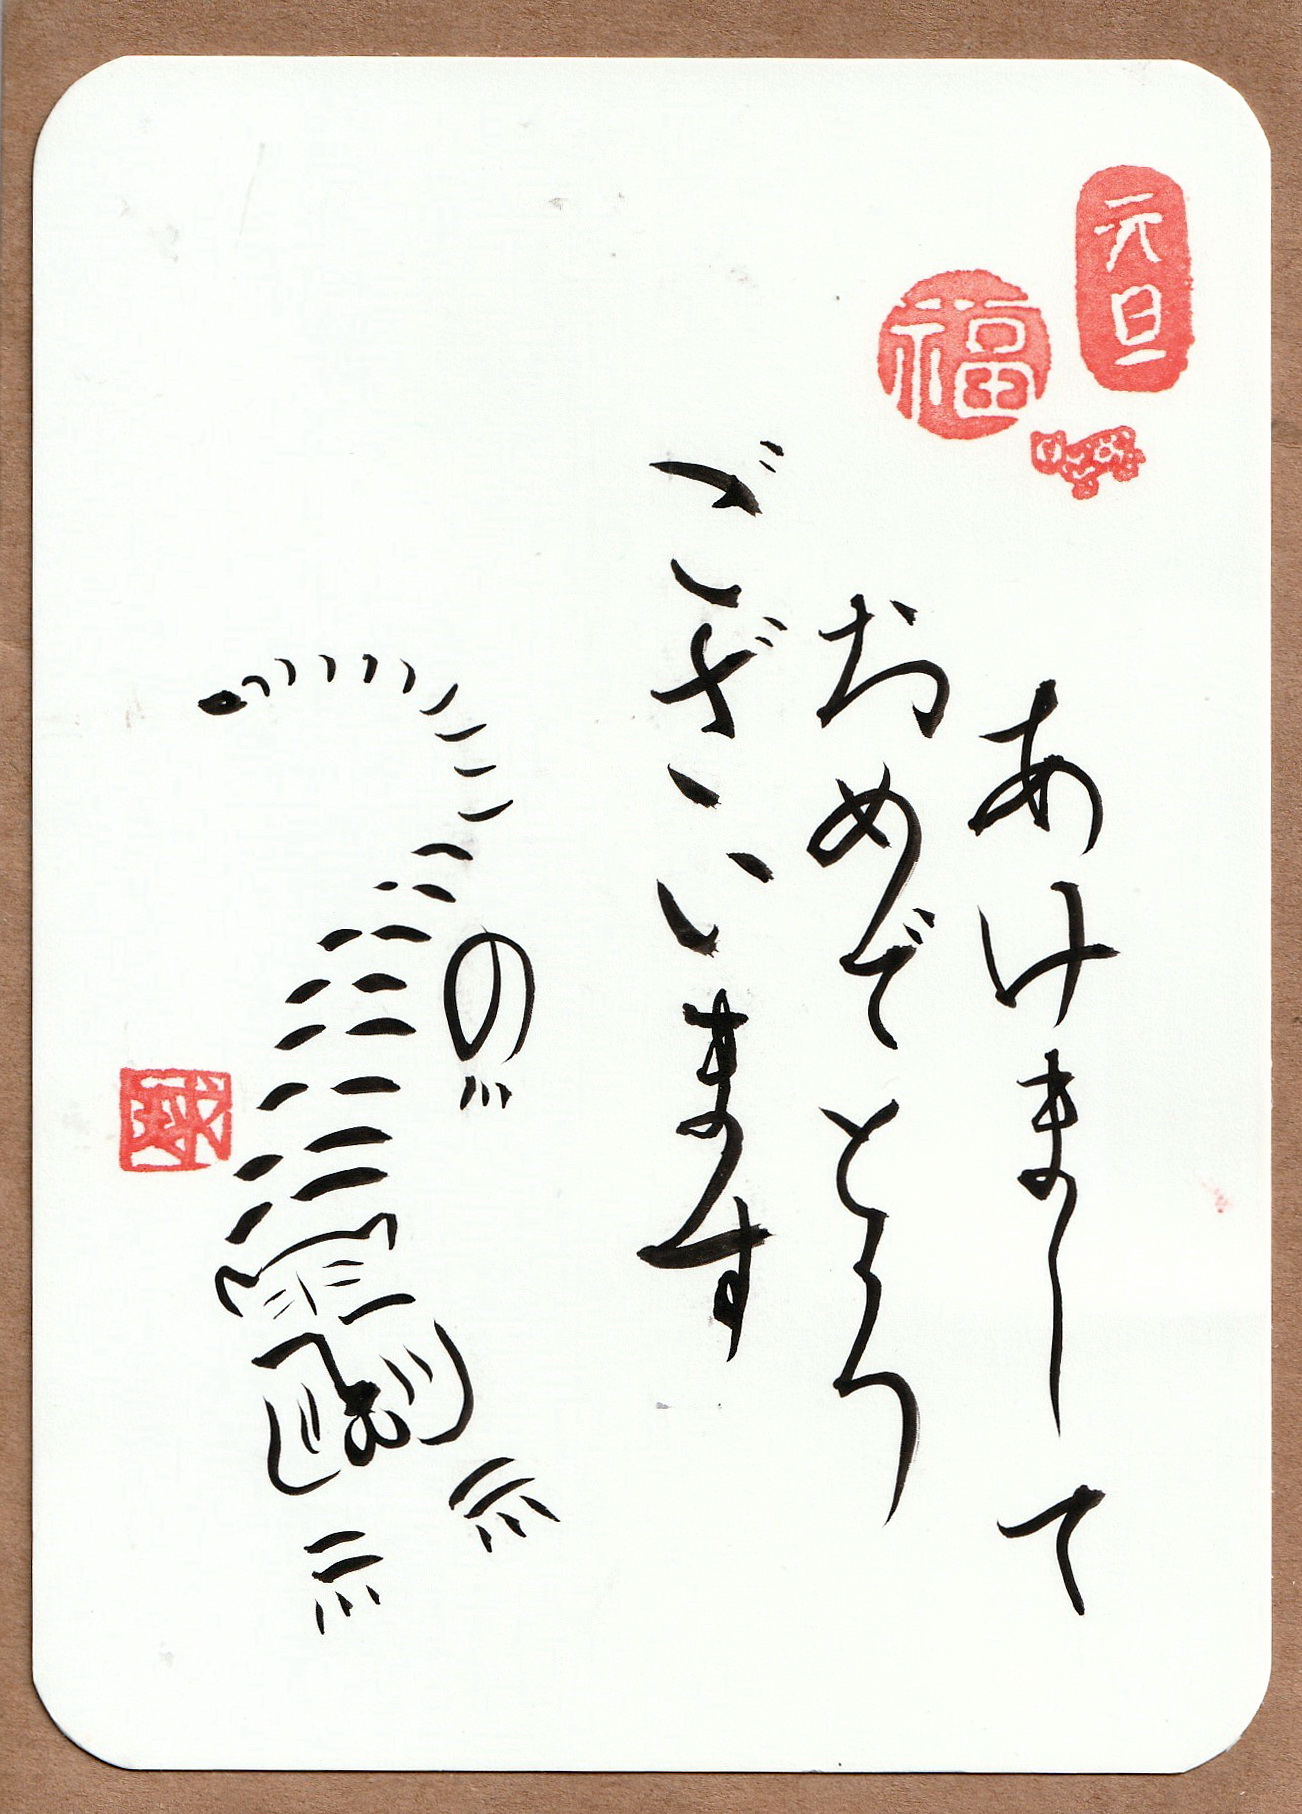 元旦
福
あけまして
おめでとう
ございます
球